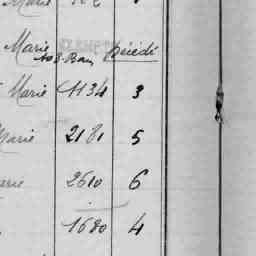 Marie
Marie Décédé
Marie 1134 3
Marie 2181 5
Marie 2610 6
1680 4